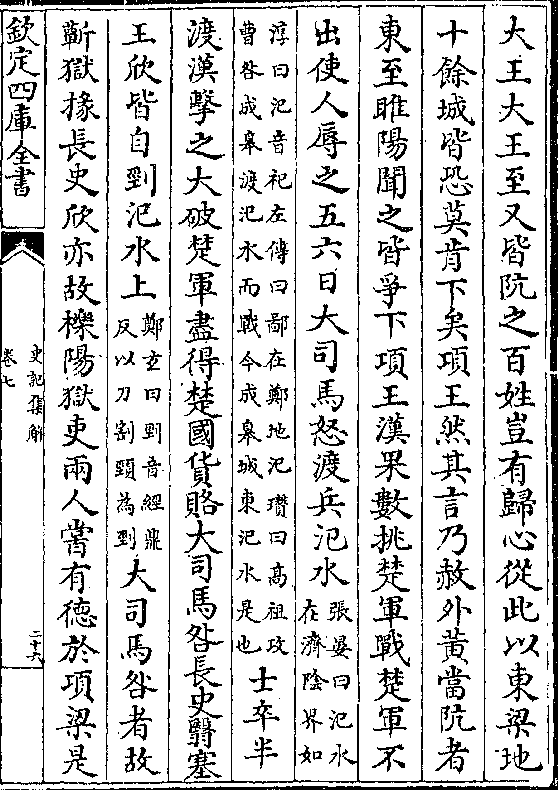 大王大王至又皆阬之百姓豈有歸心從此以東梁地
十餘城皆恐莫肯下矣項王然其言乃赦外黄當阬者
東至睢陽聞之皆爭下項王漢果數挑楚軍戰楚軍不
出使人辱之五六日大司馬怒渡兵汜水
張晏曰汜水
在濟陰界如
淳曰汜音祀左傳曰鄙在鄭地汜瓚曰高祖攻
曹咎成臯渡汜水而戰今成臯城東汜水是也
士卒半
渡漢擊之大破楚軍盡得楚國貨賂大司馬咎長史翳塞
王欣皆自剄汜水上
鄭玄曰剄音經鼎
反以刀割頸為剄
大司馬咎者故
蘄獄掾長史欣亦故櫟陽獄吏兩人嘗有德於項梁是
欽定四庫全書
史記集解
卷七
二十六